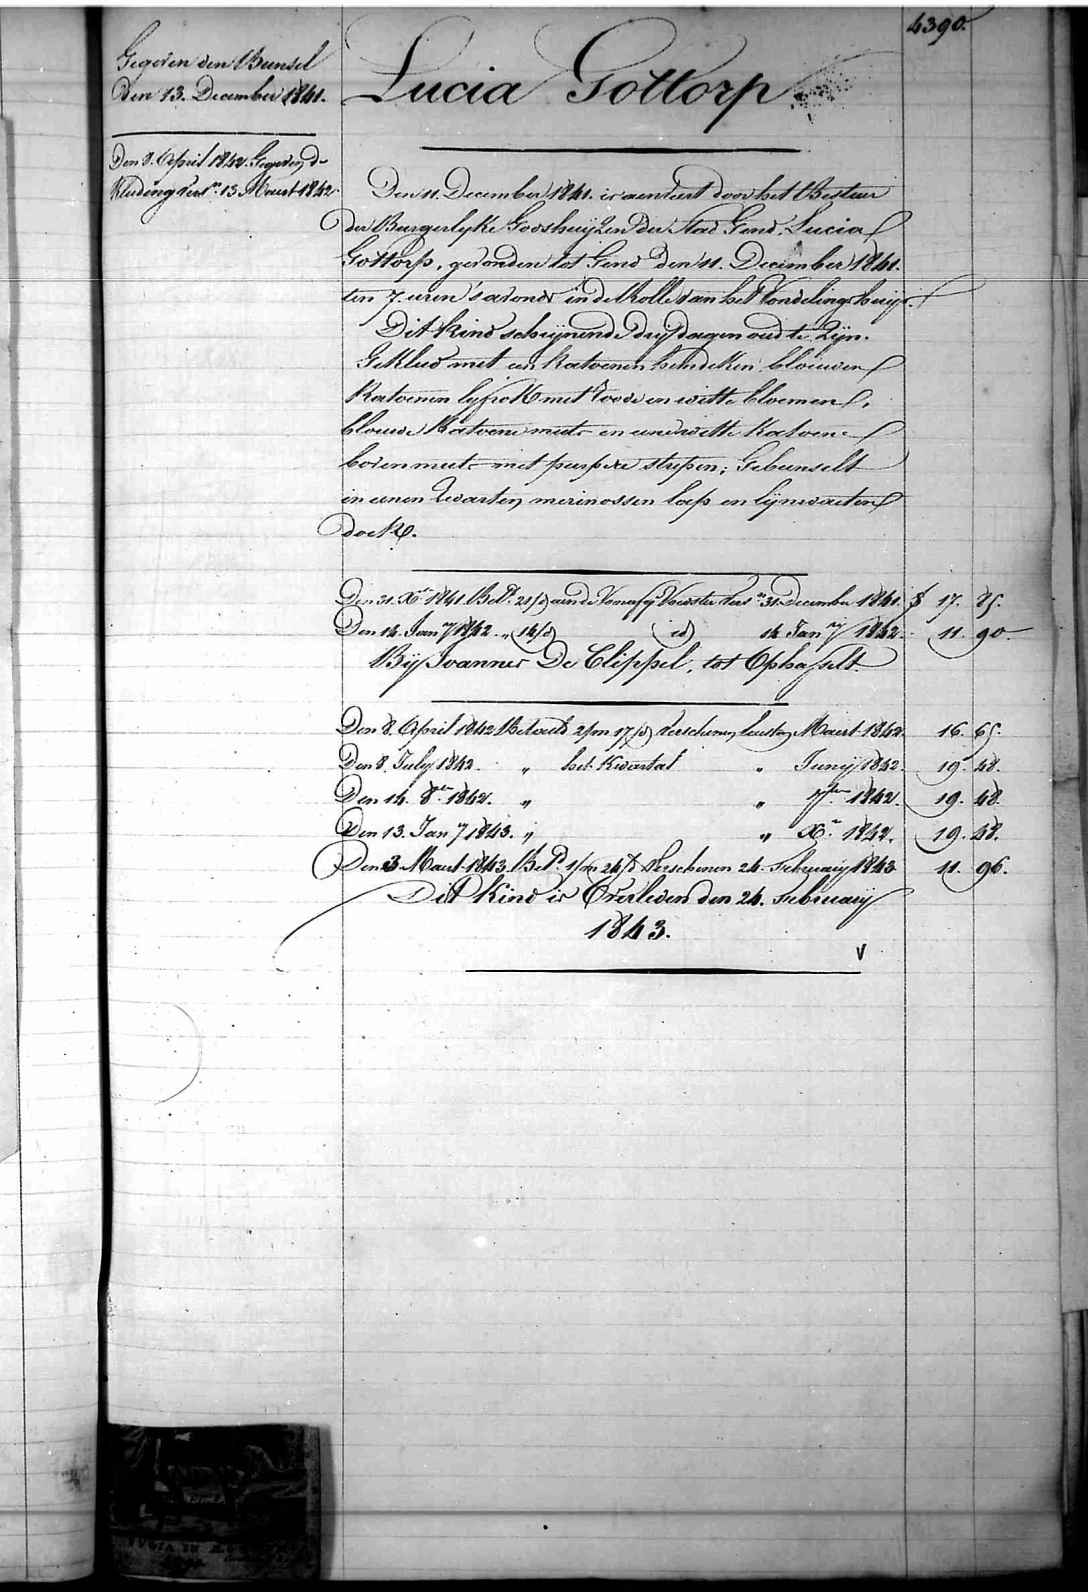 4390.
Gegeven den Bunsel
Den 13. December 1841.
Lucia Gottorp
Den 8. April 1842. Gegeven de
Kleding vers.n 13 Maert 1842.
Den 11. December 1841. is aenveert door het Bestuer
der Burgerlyke Godshuyzen der Stad Gend, Lucia
Gottorp, gevonden tot Gend den 11. December 1841.
ten 7. uren 's avonds in de Rolle van het Vondelingshuys.
Dit kind schynende dry dagen oud te zyn.
Gekleed met een katoenen hemdeken, blouwen
katoenen lyfrok met roode en witte bloemen,
blouwe katoene muts en eene witte katoene
bovenmuts met purpere strepen; Gebunselt
in eenen zwarten merinossen lap en lynwaeten
doek.
Den 31. X.r 1841. Bet.d 21/d aen de Voedster vers.n 31. December 1841. 17. 85.
Den 14. Jan.y 1842. „ 14/d id 14 Jan.y 1842. 11. 90
By Joannes De Clippel, tot Ophasselt.
Den 8. April 1842 Betaeld 2/m 17/d verschenen laesten Maert 1842. 16. 65.
Den 8. July 1842. „ het kwartal „ Juny 1842. 19. 48.
Den 14. 8.er 1842. „ „ 7.ber 1842. 19. 48.
Den 13. Jan.y 1843. „ „ X.r 1842. 19. 48.
Den 3 Maert 1843. Bet.d 1/m 24/d verschenen 24. February 1843 11. 96.
Dit kind is Overleden den 24. February
1843.
V